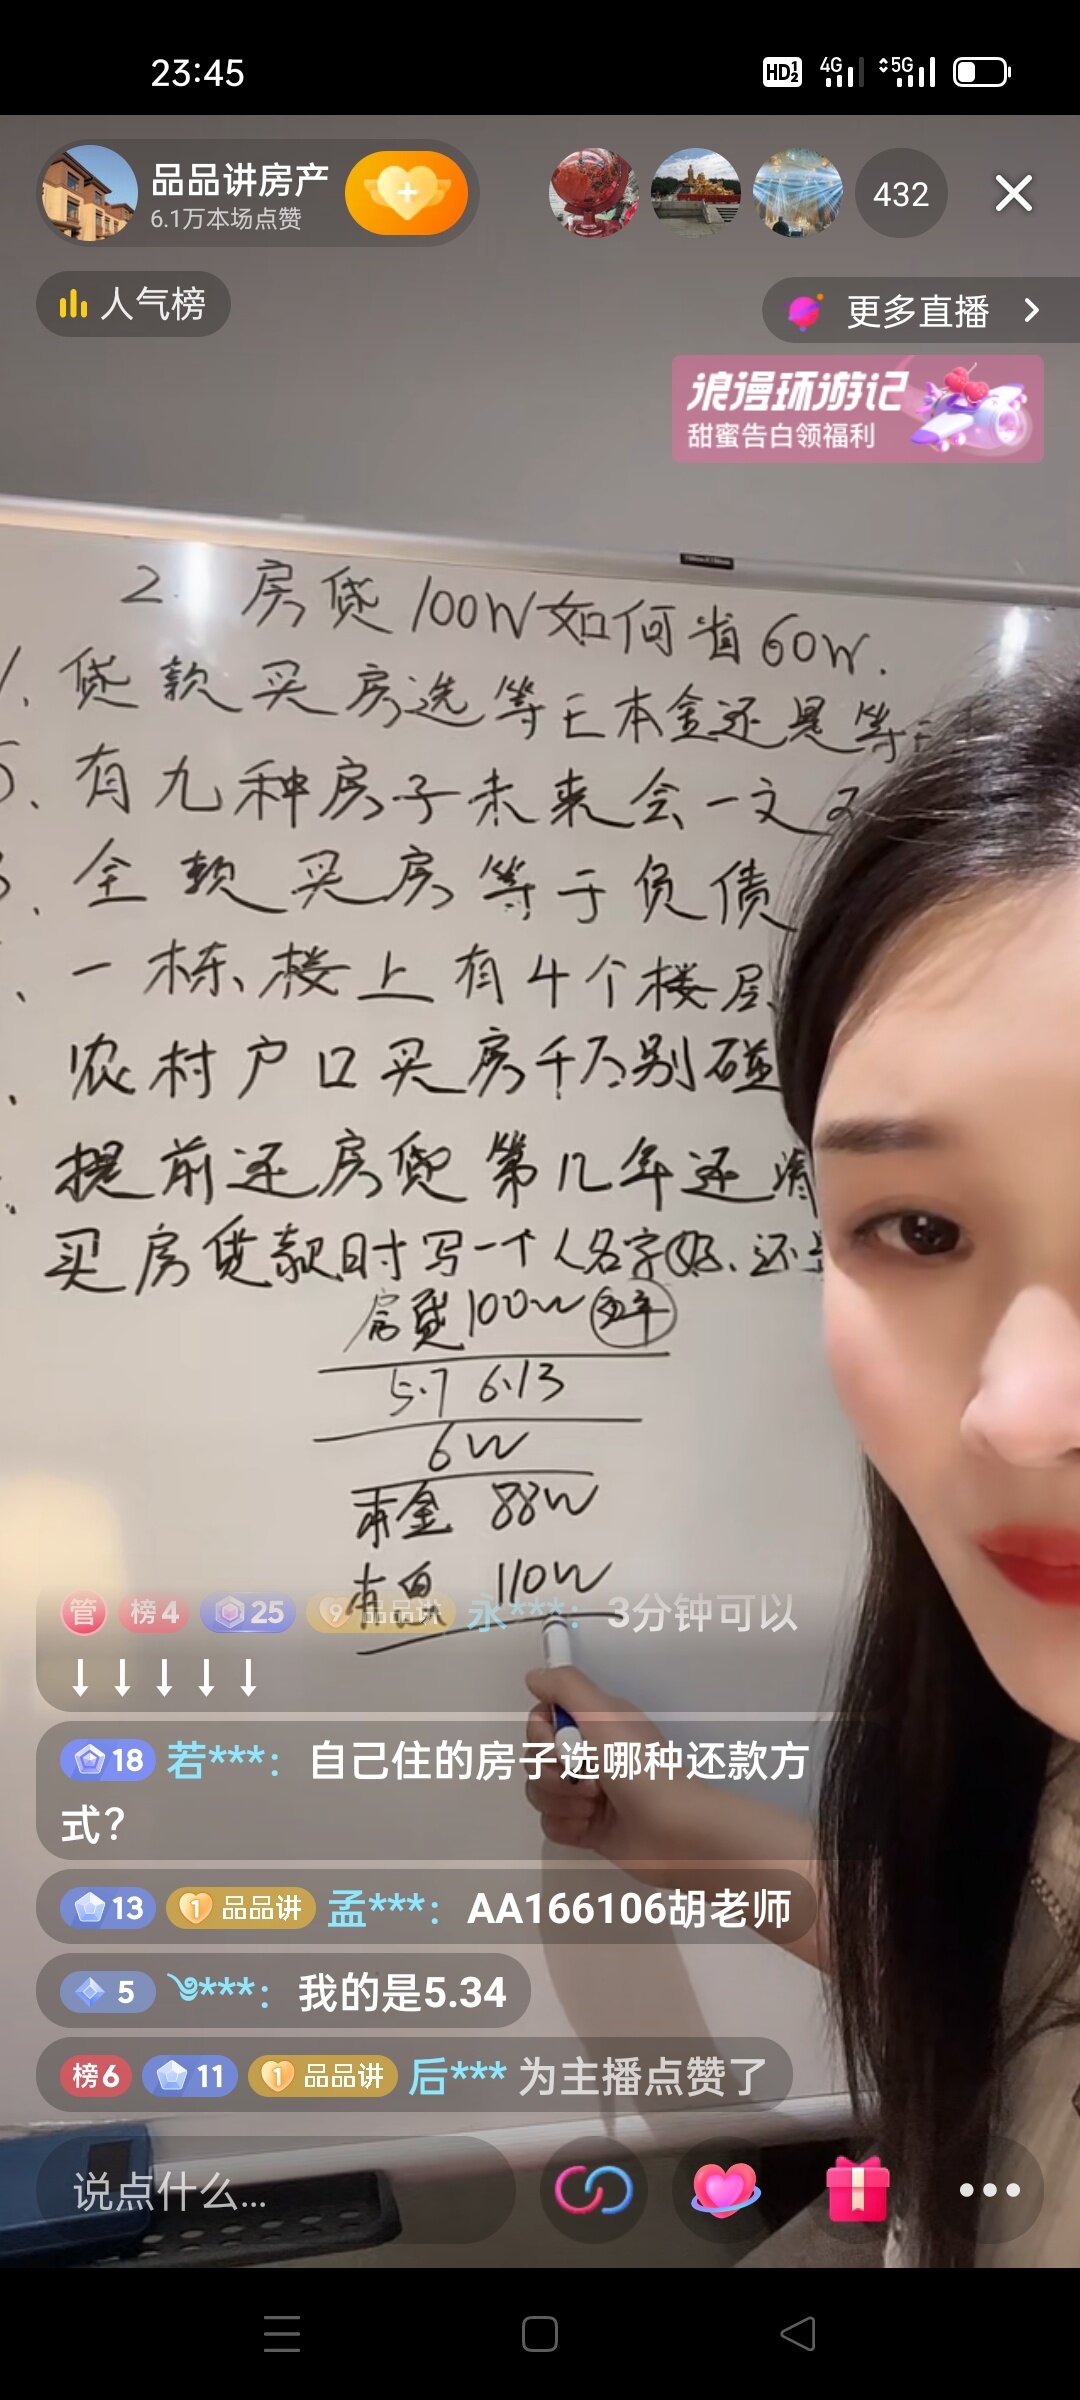 23:45
HD 1 2 4G 5G
品品讲房产
6.1万本场点赞
432
人气榜
更多直播
浪漫环游记
甜蜜告白领福利
2. 房贷100W如何省60W.
贷款买房选等于本金还是等
有九种房子未来会一文
全款买房等于负债
一栋楼上有4个楼层
农村户口买房千万别碰
提前还房贷第几年还清
买房贷款时写一个人名字好、还是
房贷100W
5.7 6.13
6W
本金 88W
本息 110W
管 榜4 25 9 品品讲 永***： 3分钟可以
↓↓↓↓↓
18 若***： 自己住的房子选哪种还款方
式？
13 1 品品讲 孟***： AA166106胡老师
5 ༄***： 我的是5.34
榜6 11 1 品品讲 后*** 为主播点赞了
说点什么...